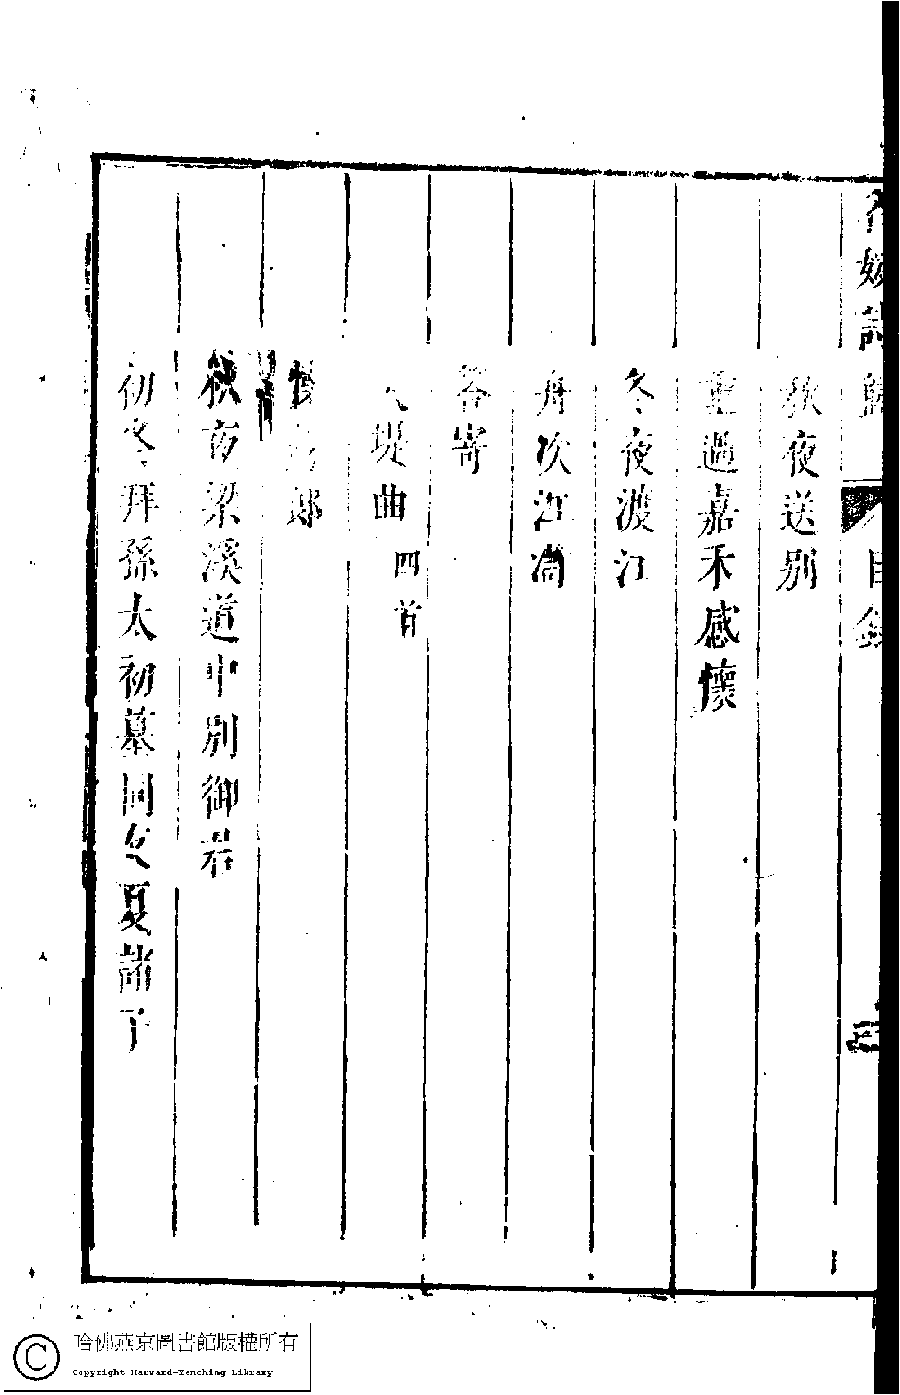 名媛詩歸 目錄
秋夜送别
重過嘉禾感懷
冬夜渡江
舟次江
答寄
堤曲 四首
郎
秋夜梁溪道中别御君
初冬拜孫太初墓同文夏諸子
哈佛燕京圖書館版權所有
Copyright Harvard-Yenching Library